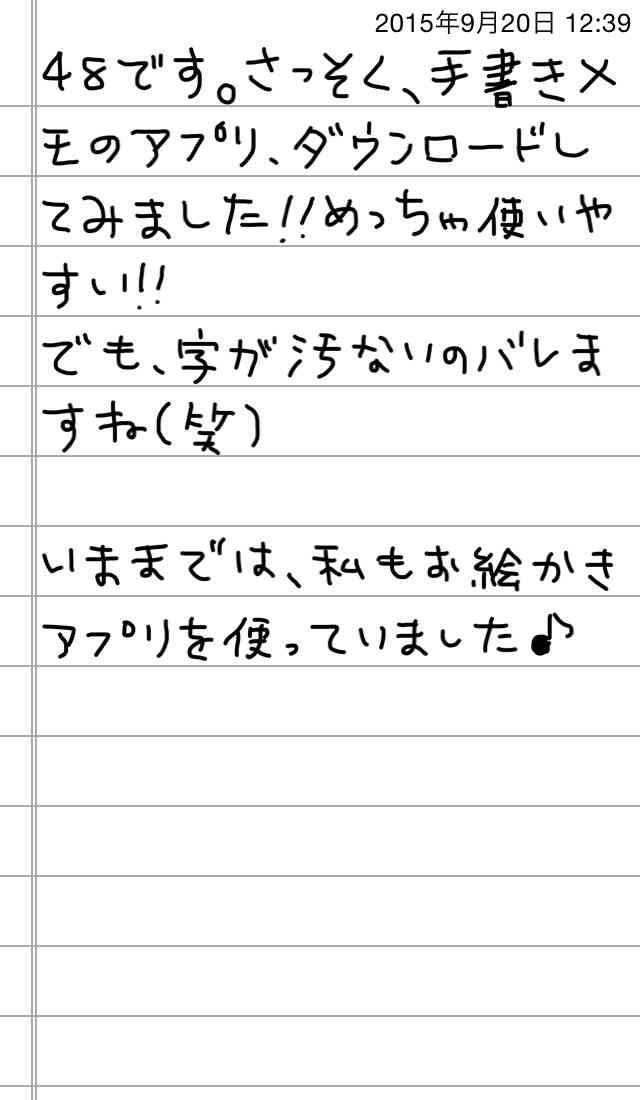 2015年9月20日 12:39
48です。さっそく、手書きメ
モのアプリ、ダウンロードし
てみました!!めっちゃ使いや
すい!!
でも、字が汚ないのバレま
すね(笑)
いままでは、私もお絵かき
アプリを使っていました♪